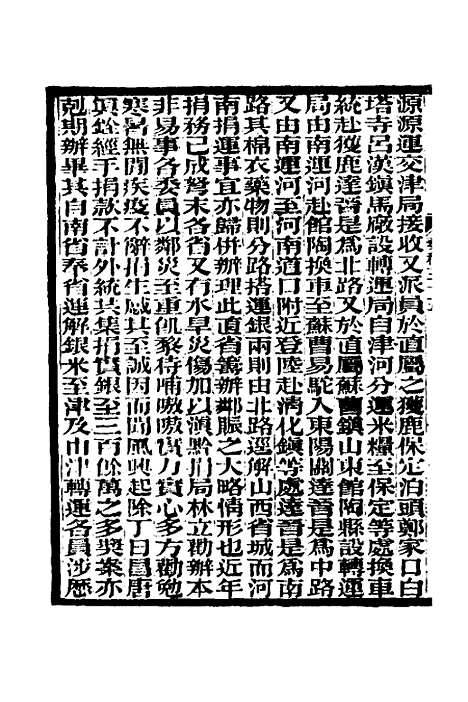 源源運交津局接收又派員於直屬之獲鹿保定泊頭鄭家口白
塔寺呂漢鎮馬廠設轉運局自津河分運米糧至保定等處換車
統赴獲鹿達晋是爲北路又於直屬蘇曹鎮山東館陶縣設轉運
局由南運河赴館陶換車至蘇曹易駝入東陽關達晋是爲中路
又由南運河至河南道口附近登陸赴清化鎮等處達晋是爲南
路其棉衣藥物則分路搭運銀兩則由北路逕解山西省城而河
南捐運事宜亦歸併辦理此直省籌辦鄰賑之大略情形也近年
捐務已成弩末各省又有水旱災傷加以滇黔捐局林立勸辦本
非易事各委員以鄰災至重飢黎待哺嗷嗷實力實心多方勸勉
寒暑無間疾疫不辭捐生感其至誠因而聞風興起除丁日昌唐
廷銓經手捐款不計外統共集捐實銀至三百餘萬之多獎案亦
剋期辦畢其自南省奉省運解銀米至津及由津轉運各員涉歷